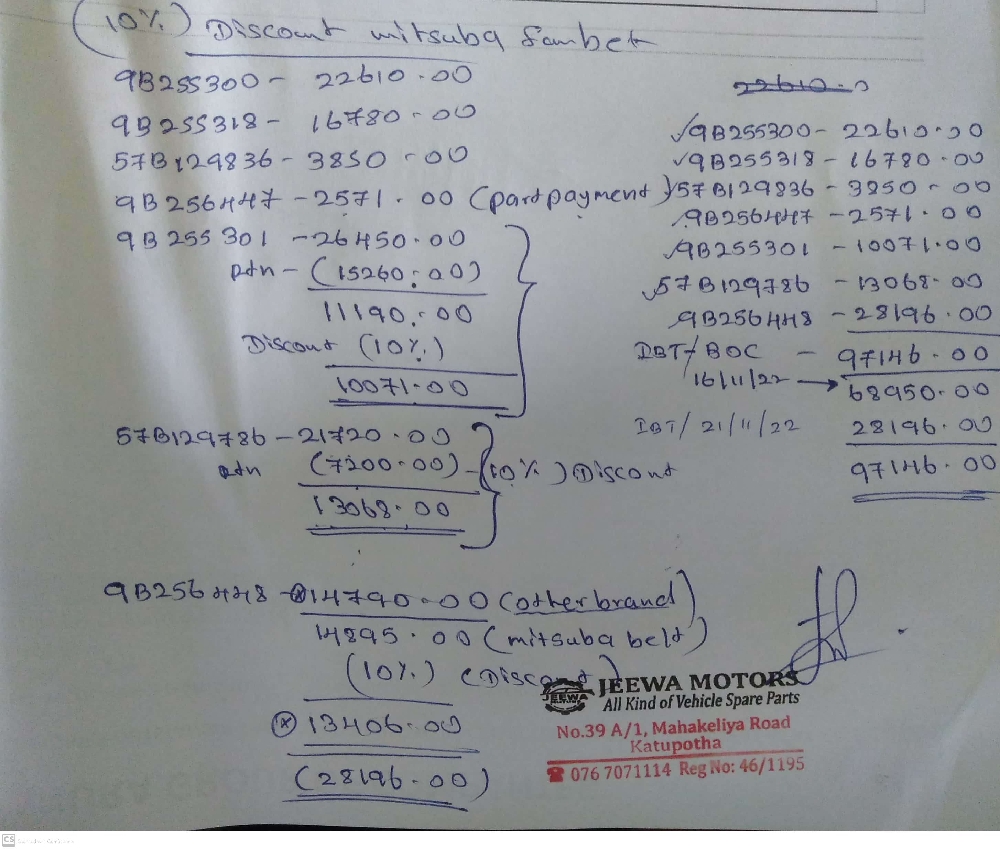 (10%) Discount mitsuba fanbelt
9B255300 - 22610.00
9B255318 - 16780.00
57B129836 - 3850.00
9B256447 - 2571.00 (part payment)
9B255301 - 26450.00
rtn - (15260.00)
11190.00
Discount (10%)
10071.00
57B129786 - 21720.00
rtn (7200.00) - (10%) Discount
13068.00
9B256448 - 14790.00 (other brand)
14895.00 (mitsuba belt)
(10%) (Discount)
13406.00
(28196.00)
22610.0
9B255300 - 22610.00
9B255318 - 16780.00
57B129836 - 3850.00
9B256447 - 2571.00
9B255301 - 10071.00
57B129786 - 13068.00
9B256448 - 28196.00
IBT/BOC - 97146.00
16/11/22 → 68950.00
IBT/ 21/11/22 28196.00
97146.00
JEEWA
JEEWA MOTORS
All Kind of Vehicle Spare Parts
No.39 A/1, Mahakeliya Road
Katupotha
☎ 076 7071114 Reg No: 46/1195
CS